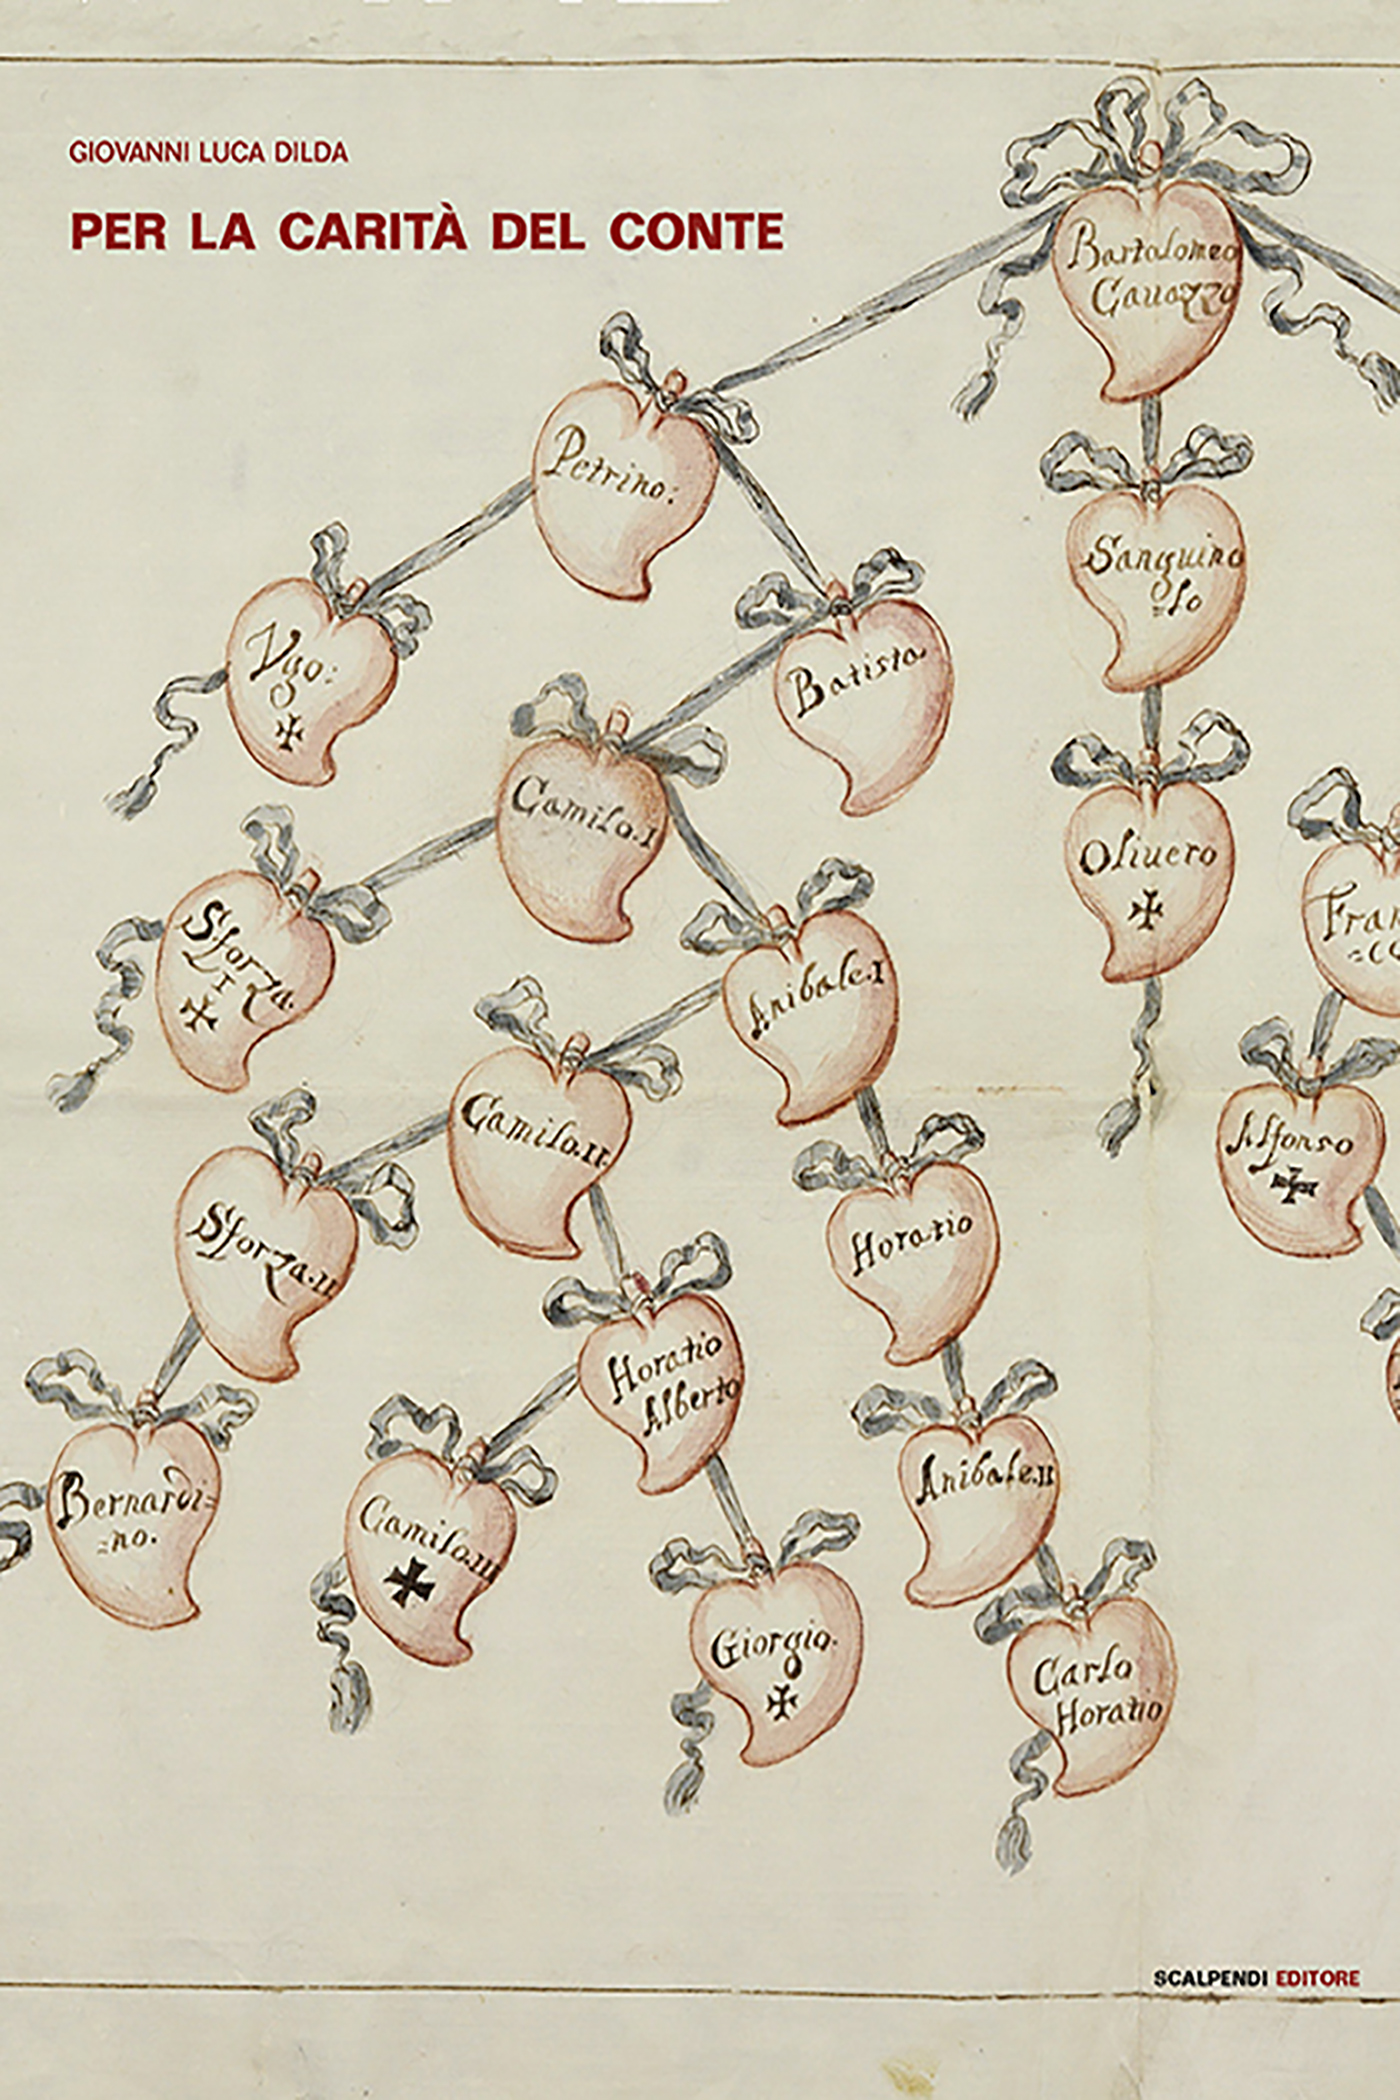 GIOVANNI LUCA DILDA
PER LA CARITÀ DEL CONTE
Bartolomeo
Cauazzo
Petrino:
Sanguino
=lo
Vgo:
Batista
Camilo.I
Oliuero
Sforza.
I
Anibale.I
Fran
=co
Camilo.II.
Alfonso
Sforza.II
Horatio
Horatio
Alberto
Bernardi=
=no.
Camilo.III
Anibale.II
Giorgio.
Carlo
Horatio
SCALPENDI EDITORE